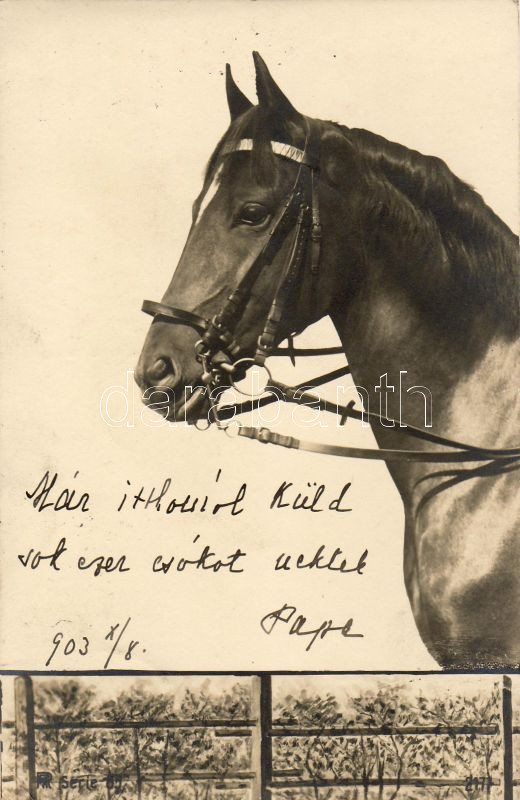 darabanth
Már itthonról küld
sok ezer csókot nektek
Papa
903 X/8.
Serie